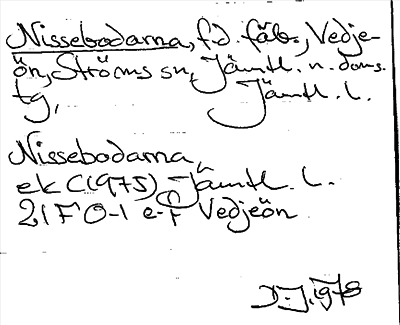 Nissebodarna, f.d. fäb., Vedje-
ön, Ströms sn, Jämtl. n. doms.
tg, Jämtl. l.
Nissebodarna
ek C(1975) Jämtl. l.
21F 0-1 e-f Vedjeön
1978